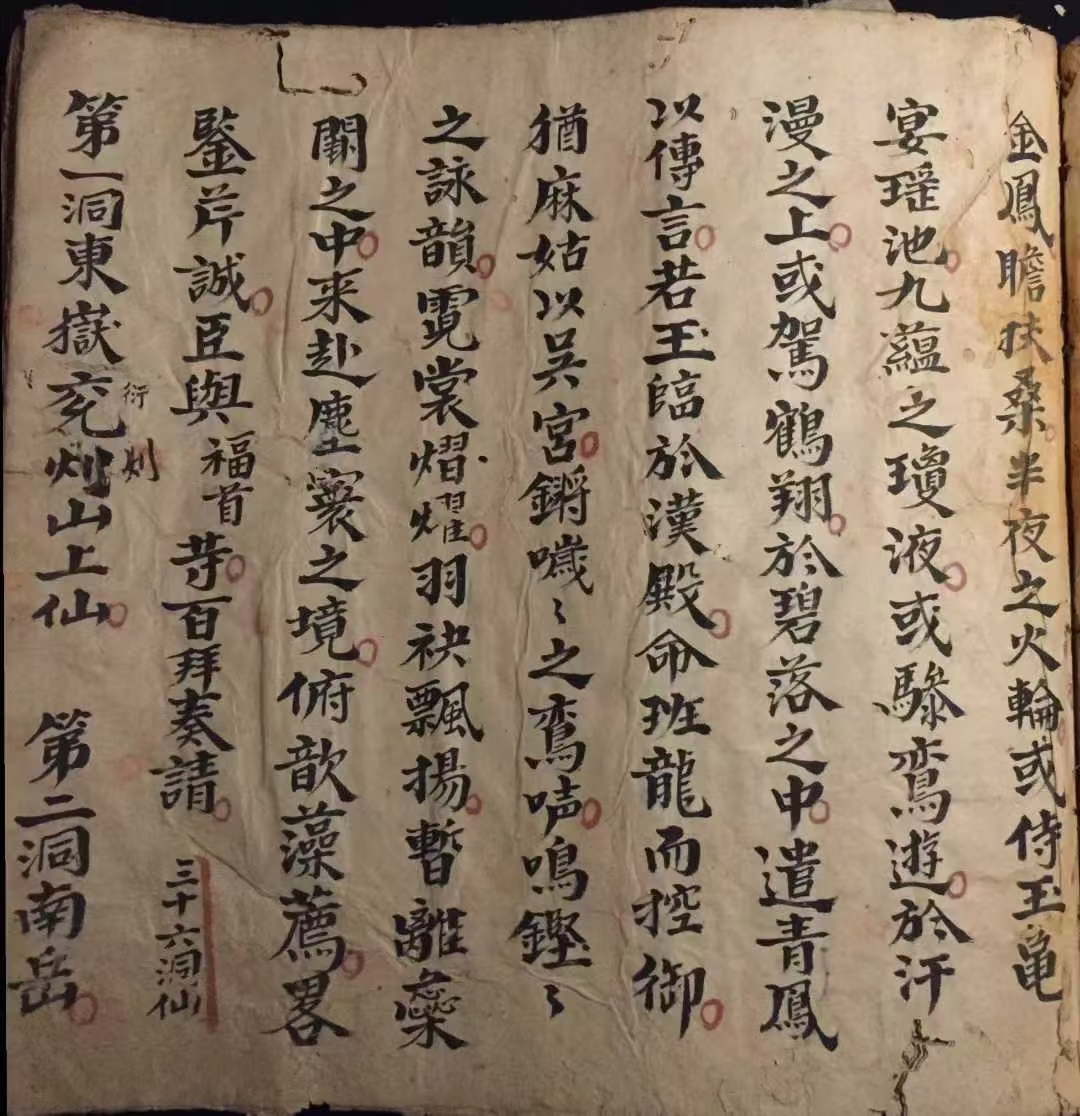 金鳳瞻扶桑半夜之火輪或侍玉亀
宴瑶池九蘊之瓊液或驂鸞遊於汗
漫之上或駕鶴翔於碧落之中遣青鳳
以傳言若玉臨於漢殿命班龍而控御
猶麻姑以吳宮鏘噦〻之鸞声鳴鏗〻
之詠韻霓裳熠燿羽袂飄揚暫離蘂
闕之中来赴塵寰之境俯歆藻薦畧
鑒芹誠臣與福首䓁百拜奏請 三十六洞仙
第一洞東嶽兖州山上仙 第二洞南岳
衍 刈